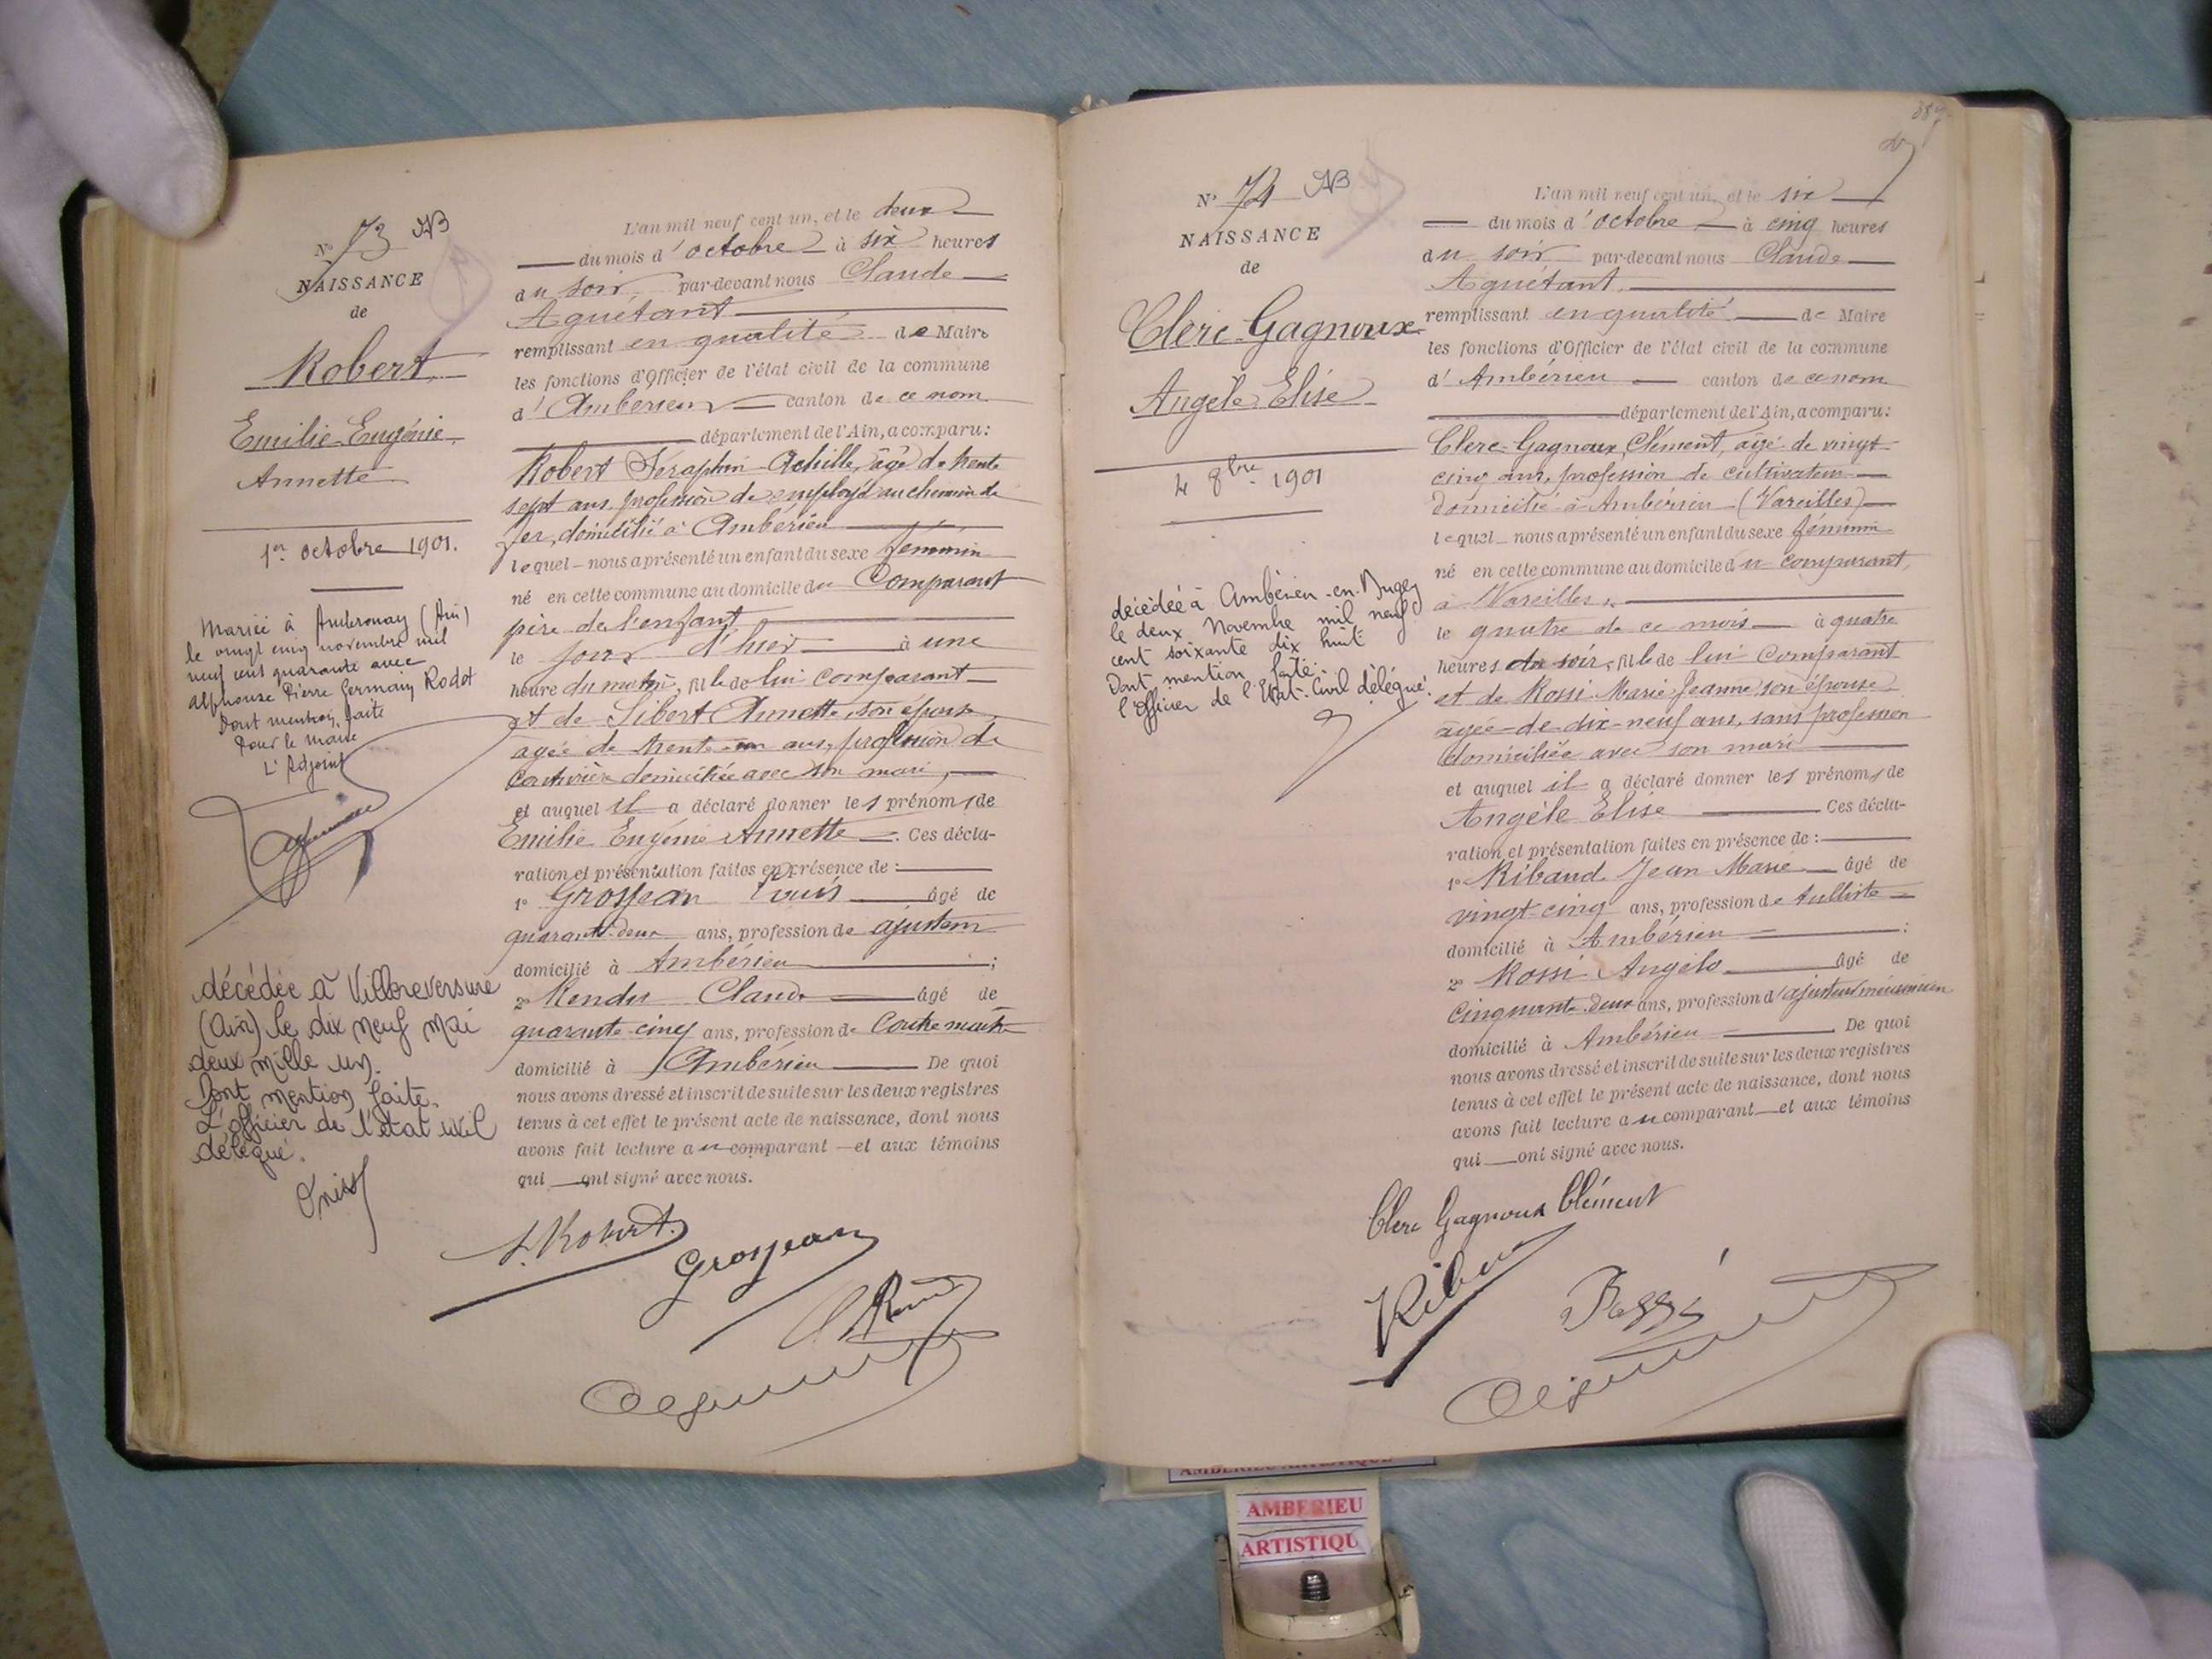 N° 73 AB
NAISSANCE
de
Robert
Emilie Eugénie
Annette
1er octobre 1901.
Mariée à Ambronay (Ain)
le vingt cinq novembre mil
neuf cent quarante avec
Alphonse Pierre Germain Rodet
Dont mention faite
Pour le maire
L'Adjoint
décédée à Villereversure
(Ain) le dix neuf mai
deux mille un.
Dont mention faite.
L'officier de l'état civil
délégué.
L'an mil neuf cent un, et le deux
du mois d'octobre à six heures
du soir par-devant nous Claude
Aguétant
remplissant en qualité de Maire
les fonctions d'Officier de l'état civil de la commune
d'Ambérieu canton de ce nom
département de l'Ain, a comparu:
Robert Séraphin Achille, âgé de trente
sept ans, profession de employé au chemin de
fer, domicilié à Ambérieu
lequel nous a présenté un enfant du sexe féminin
né en cette commune au domicile du Comparant
père de l'enfant
le jour d'hier à une
heure du matin, fille de lui comparant
et de Sibert Annette, son épouse
agée de trente-un ans, profession de
couturière domiciliée avec son mari,
et auquel il a déclaré donner les prénoms de
Emilie Eugénie Annette. Ces décla-
ration et présentation faites en présence de :
1° Grosjean Louis âgé de
quarante-deux ans, profession de ajusteur
domicilié à Ambérieu ;
2° Claude âgé de
quarante-cinq ans, profession de Contremaître
domicilié à Ambérieu De quoi
nous avons dressé et inscrit de suite sur les deux registres
tenus à cet effet le présent acte de naissance, dont nous
avons fait lecture au comparant et aux témoins
qui ont signé avec nous.
S. Robert.
Grosjean
N° 74 AB
NAISSANCE
de
Clerc-Gagnoux
Angèle Elise
4 8bre 1901
décédée à Ambérieu-en-Bugey
le deux Novembre mil neuf
cent soixante dix huit
Dont mention faite.
l'Officier de l'Etat-Civil délégué.
L'an mil neuf cent un, et le six
du mois d'octobre à cinq heures
du soir par-devant nous Claude
Aguétant
remplissant en qualité de Maire
les fonctions d'Officier de l'état civil de la commune
d'Ambérieu canton de ce nom
département de l'Ain, a comparu:
Clerc-Gagnoux Clément, âgé de vingt-
cinq ans, profession de cultivateur
domicilié à Ambérieu (Vareilles)
lequel nous a présenté un enfant du sexe féminin
né en cette commune au domicile du comparant,
à Vareilles,
le quatre de ce mois à quatre
heures du soir, fille de lui Comparant
et de Rossi Marie Jeanne son épouse
agée de dix-neuf ans, sans profession
domiciliée avec son mari
et auquel il a déclaré donner les prénoms de
Angèle Elise Ces décla-
ration et présentation faites en présence de :
1° Ribaud Jean Marie âgé de
vingt-cinq ans, profession de tulliste
domicilié à Ambérieu ;
2° Rossi Angelo âgé de
cinquante-deux ans, profession d'ajusteur mécanicien
domicilié à Ambérieu De quoi
nous avons dressé et inscrit de suite sur les deux registres
tenus à cet effet le présent acte de naissance, dont nous
avons fait lecture au comparant et aux témoins
qui ont signé avec nous.
Clerc Gagnoux Clément
Rossi
AMBERIEU ARTISTIQUE
AMBERIEU
ARTISTIQU